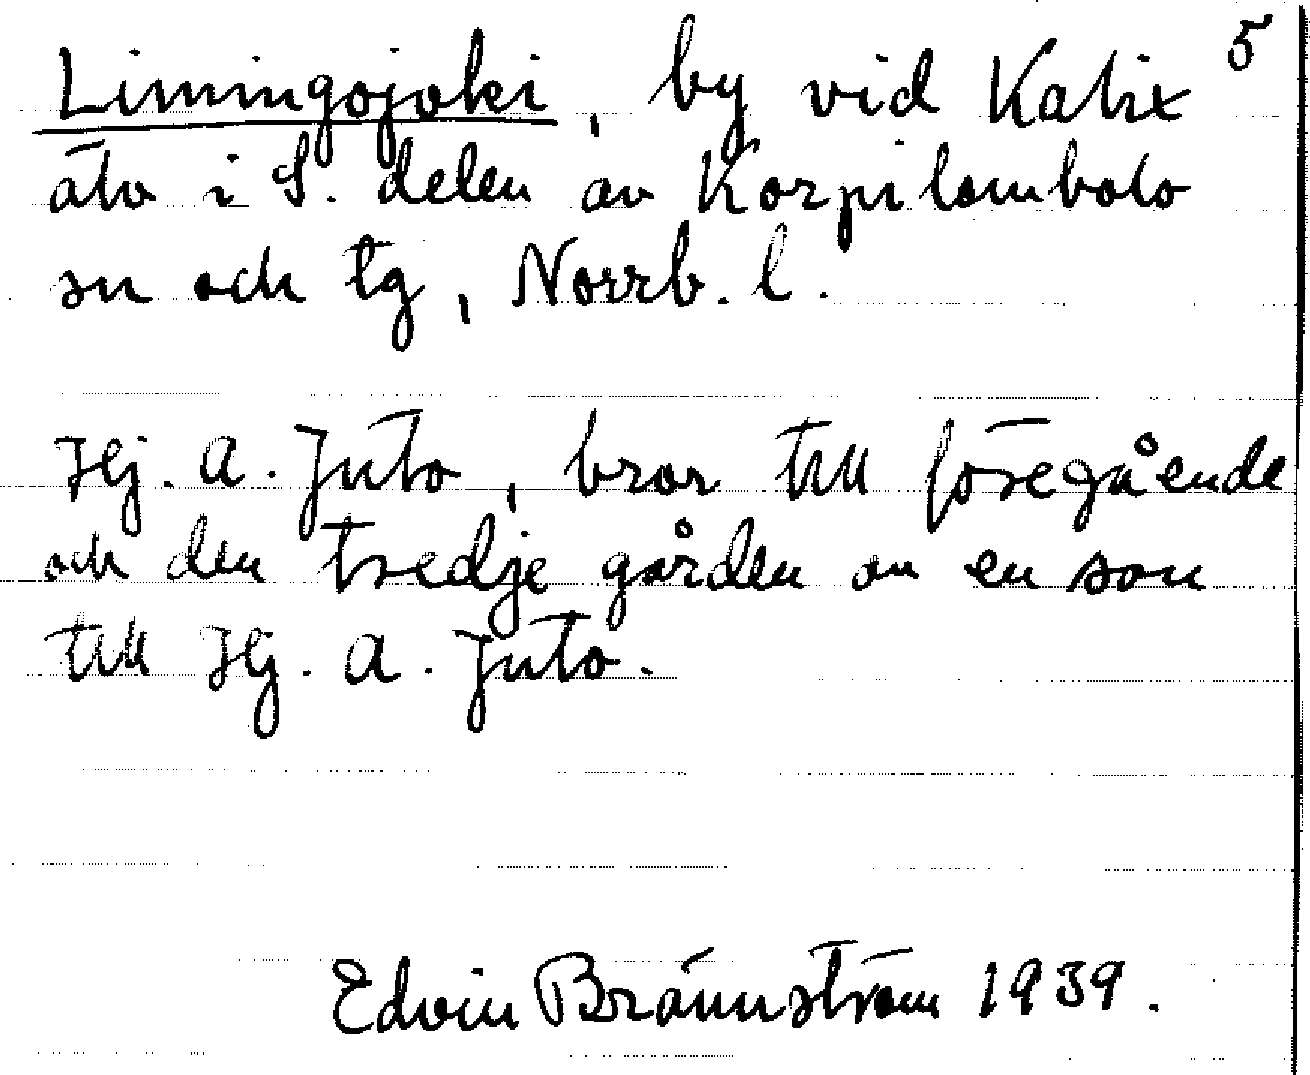 Limingojoki, by vid Kalix 5
älv i S. delen av Korpilombolo
sn och tg, Norrb. l.
Hj. A. Juto, bror till föregående
och den tredje gården av en son
till Hj. A. Juto.
Edvin Brännström 1939.